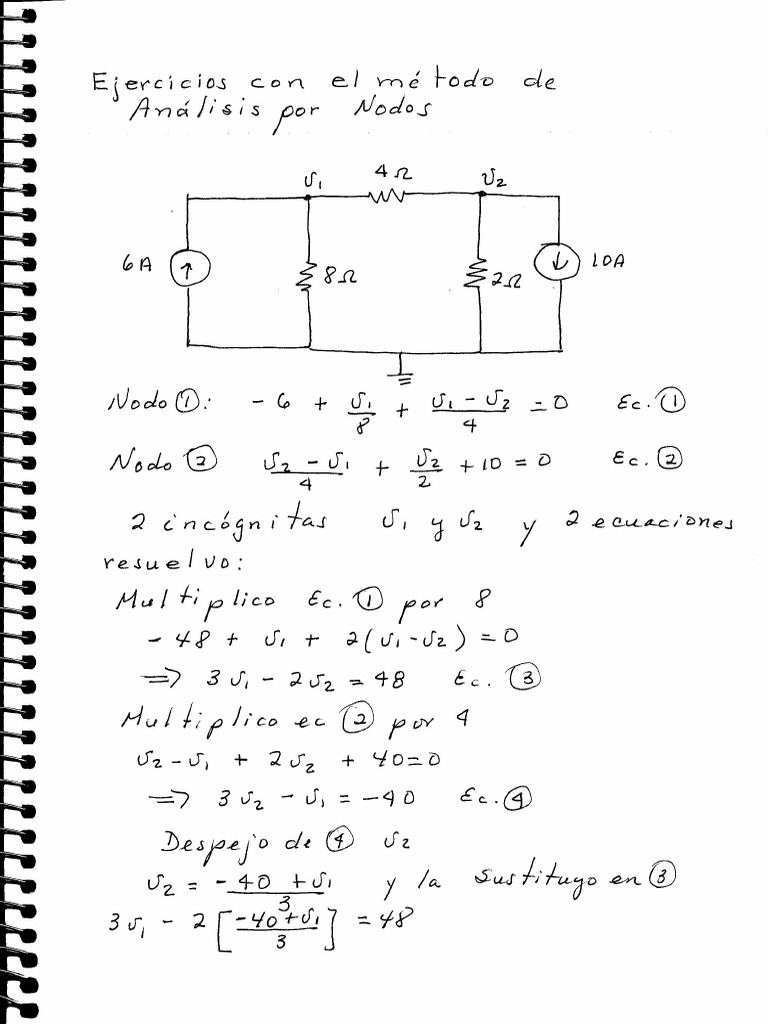 Ejercicios con el método de
Análisis por Nodos
υ₁ 4Ω υ₂
6A 8Ω 2Ω 10A
Nodo ①: - 6 + υ₁/8 + (υ₁ - υ₂)/4 = 0 Ec. ①
Nodo ② (υ₂ - υ₁)/4 + υ₂/2 + 10 = 0 Ec. ②
2 incógnitas υ₁ y υ₂ y 2 ecuaciones
resuelvo:
Multiplico Ec. ① por 8
- 48 + υ₁ + 2(υ₁-υ₂) = 0
=> 3υ₁ - 2υ₂ = 48 Ec. ③
Multiplico ec ② por 4
υ₂ - υ₁ + 2υ₂ + 40 = 0
=> 3υ₂ - υ₁ = -40 Ec. ④
Despejo de ④ υ₂
υ₂ = (-40 + υ₁)/3 y la sustituyo en ③
3υ₁ - 2[(-40+υ₁)/3] = 48